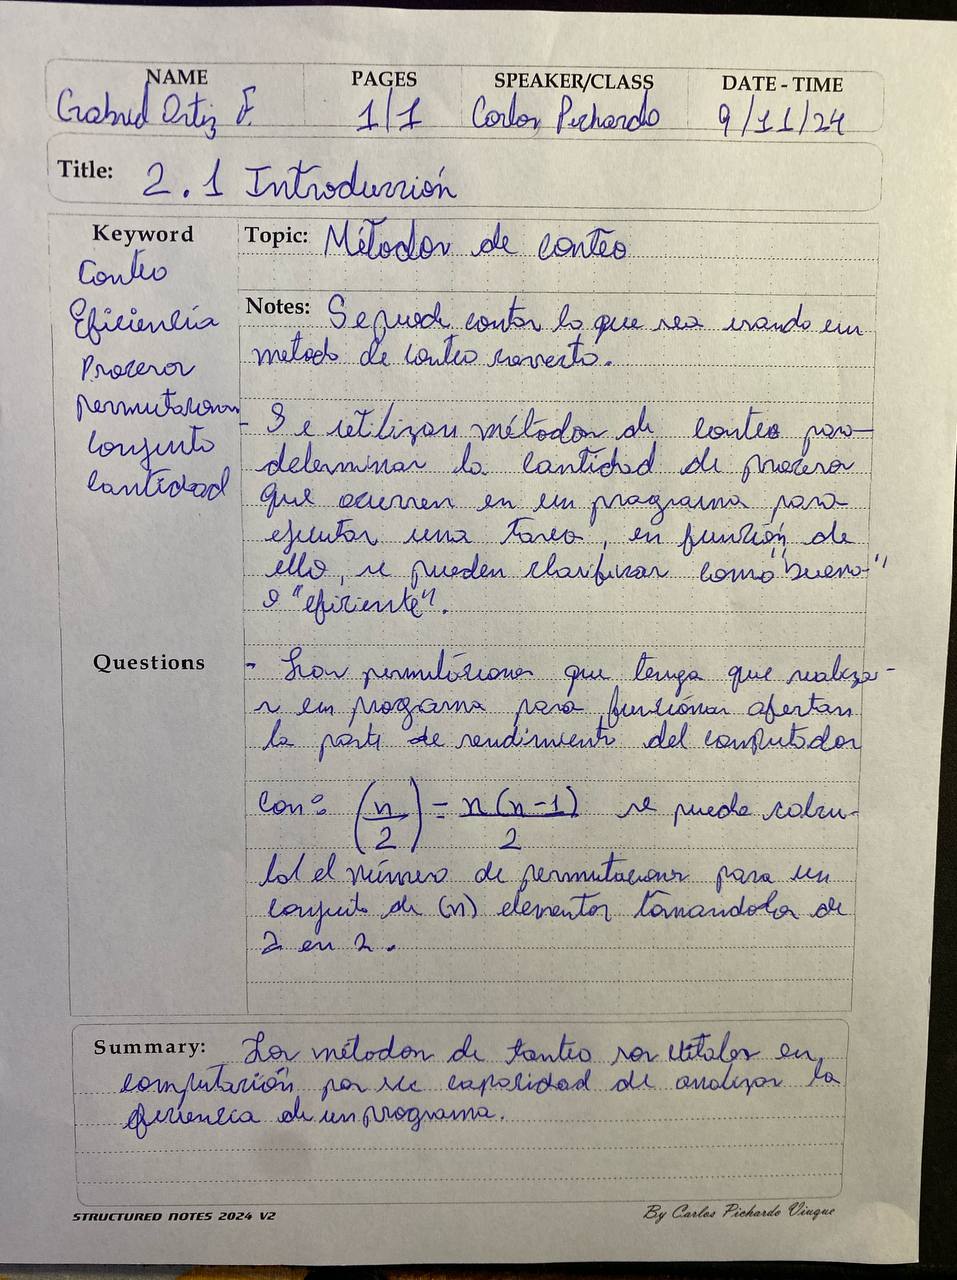 NAME PAGES SPEAKER/CLASS DATE - TIME
Gabriel Ortiz F. 1/1 Carlos Pichardo 9/11/24
Title: 2.1 Introducción
Keyword
Conteo
Eficiencia
Procesos
Permutaciones
Conjunto
Cantidad
Questions
Topic: Métodos de conteo
Notes: Se puede contar lo que sea usando un
metodo de conteo correcto.
- Se utilizan métodos de conteo para
determinar la cantidad de procesos
que ocurren en un programa para
ejecutar una tarea, en función de
ello, se pueden clasificar como "bueno"
o "eficiente".
- Las permutaciones que tenga que realiza-
r un programa para funcionar afectan
la parte de rendimiento del computador
Con: (n/2) = n(n-1)/2 se puede calcu-
lal el número de permutaciones para un
conjunto de (n) elementos tomandolos de
2 en 2.
Summary: Los métodos de conteo son vitales en
computación por su capacidad de analizar la
eficiencia de un programa.
STRUCTURED NOTES 2024 V2
By Carlos Pichardo Viuque